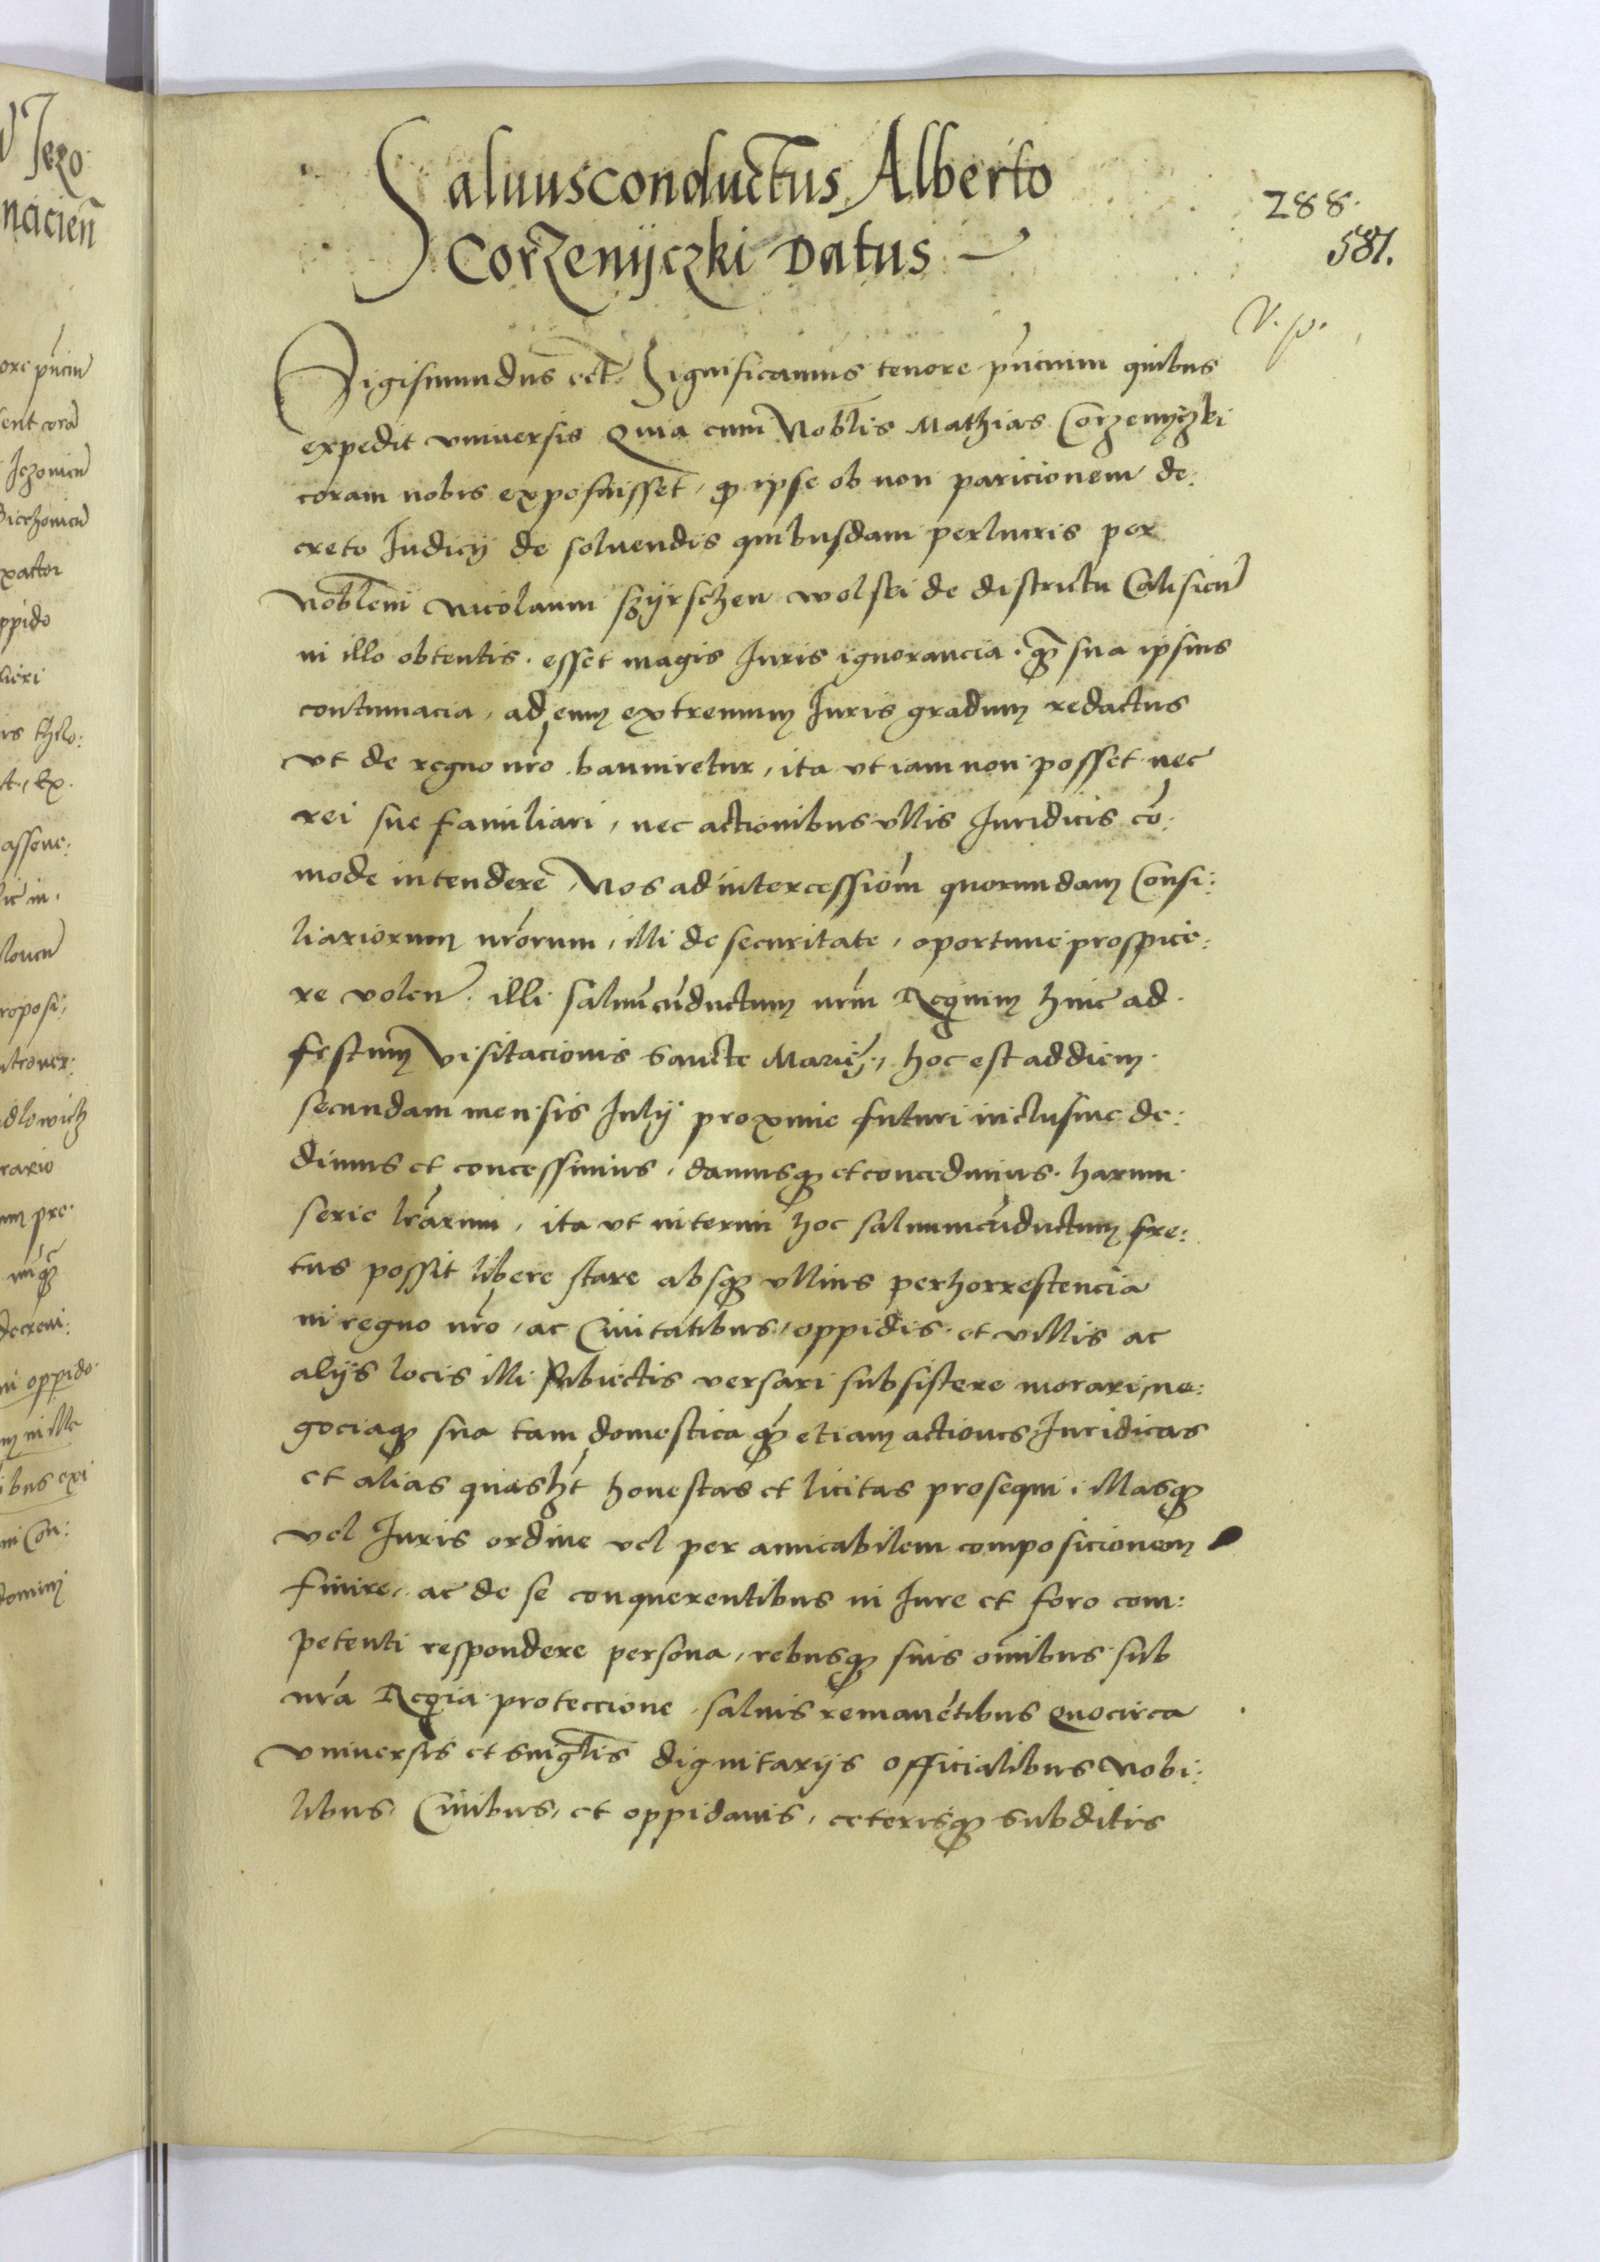 Saluusconductus Alberto
Corzenyczki Datus
288.
581.
Sigismundus ect. Significamus tenore pñcium quibus
expedit vniuersis Quia cum Nobilis Mathias Corzenyczki
coram nobis exposuisset, q ipse ob non paricionem de:
creto Iudicij de soluendis quibusdam perlucris per
Nobilem Nicolaum wolski de districtu Calisien
in illo obtentis. esset magis Iuris ignorancia. q̃ sua ipsius
contumacia, ad eum extremum Iuris gradum redactus
vt de regno nr̃o banniretur, ita vt iam non posset nec
rei sue familiari, nec actionibus vllis Iuridicis cõ:
mode intendere, Nos ad intercessiõm quorundam Consi:
liariorum nr̃orum, illi de securitate, oportune prospice:
re volen. illi saluũcũductum nr̃m Regium hinc ad
festum Visitacionis Sancte Marie, hoc est ad diem
secundam mensis Iulij proxime futuri inclusiue de:
dimus et concessimus, damusq et concedimus. harum
serie lr̃arum, ita vt interim hoc saluumcũductum fre:
tus possit libere stare absq vllius perhorrescencia
in regno nr̃o, ac Ciuitatibus, oppidis et villis ac
alijs locis illi subiectis versari subsistere morari, ne:
gociaq sua tam domestica q̃ etiam actiones Iuridicas
et alias quasht honestas et licitas prosequi illasq
vel Iuris ordine vel per amicabilem composicionem
finire, ac de se conquerentibus in Iure et foro com:
petenti respondere persona, rebusq suis oĩnibus sub
nr̃a Regia proteccione saluis remanẽtibus Quocirca
vniuersis et singlis dignitarijs officialibus Nobi:
libus, Ciuibus, et oppidanis, ceterisq subditis